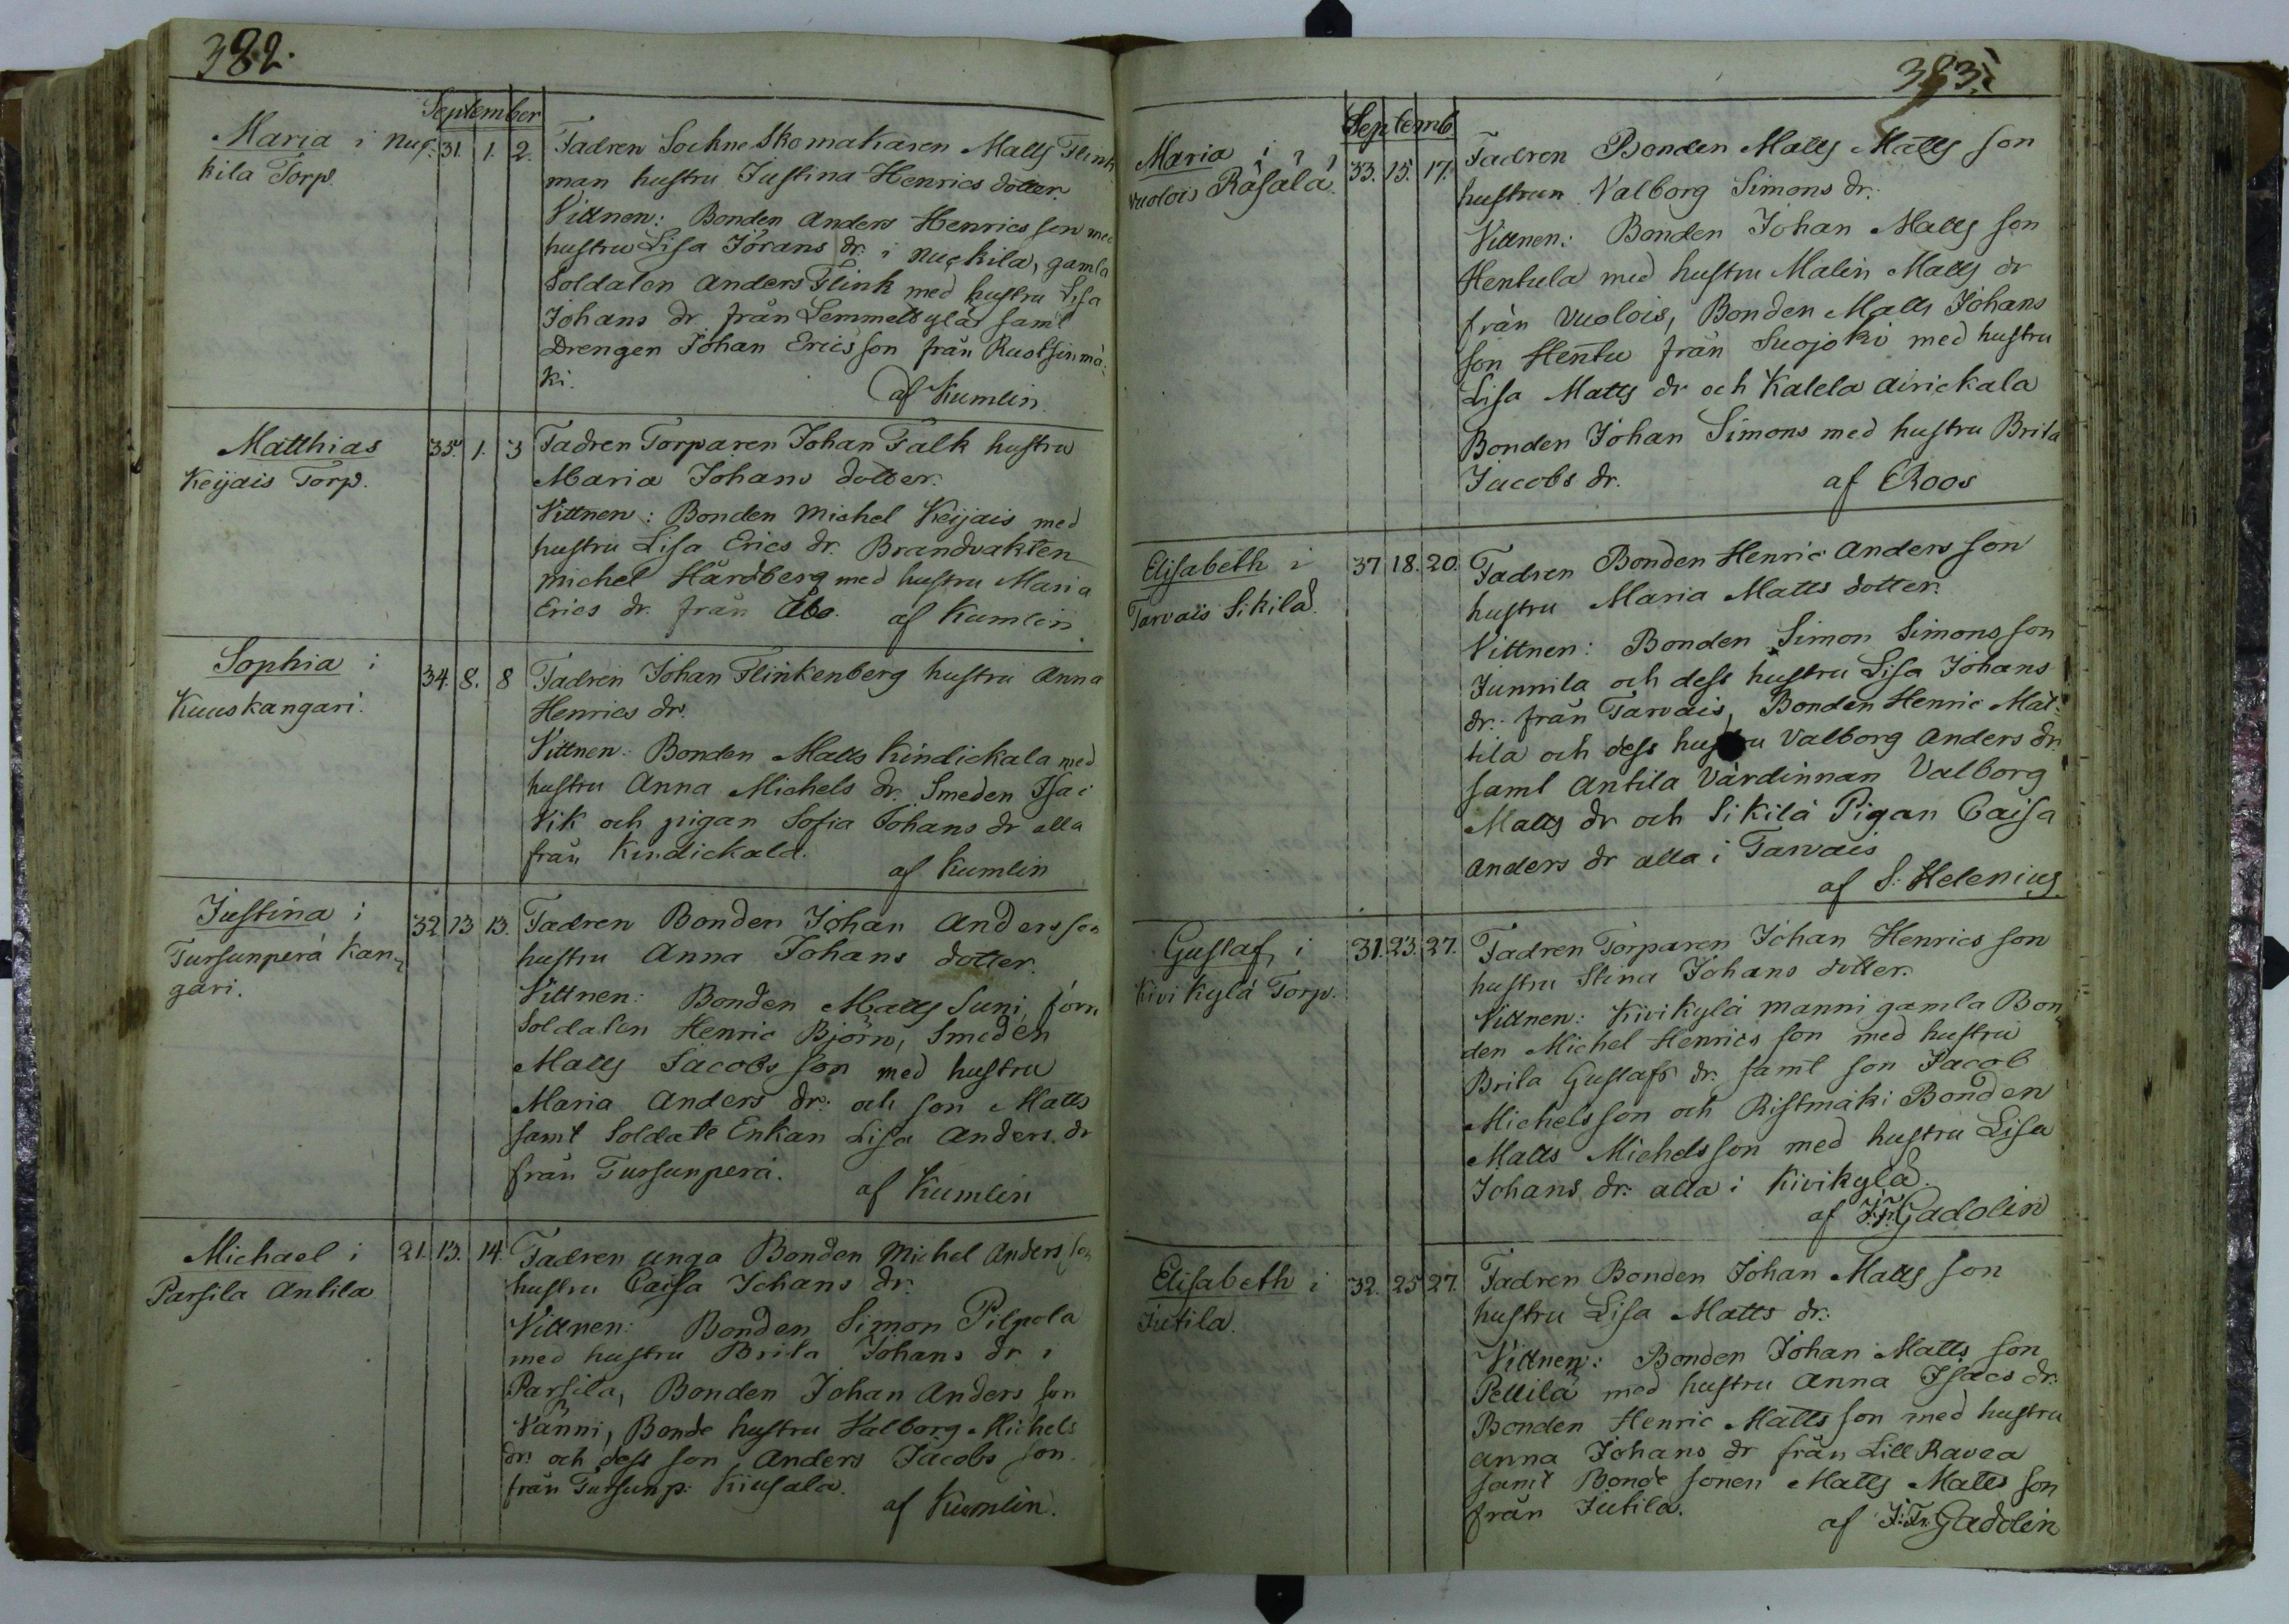 382.
September
Maria i Nuc-
kila Torp.
31. 1. 2.
Fadren Sockne Skomakaren Matts Flink
man hustru Justina Henrics dotter.
Vittnen: Bonden Anders Henricsson med
hustru Lisa Jörans dr: i Nuckila, gamla
Soldaten Anders Flink med hustru Lisa
Johans dr från Lemmettylä samt
Drengen Johan Ericsson från Ruotsinmä-
ki.
af Kumlin.
Matthias
Keijais Torp.
35. 1. 3
Fadren Torparen Johan Falk hustru
Maria Johans dotter.
Vittnen: Bonden Michel Keijais med
hustru Lisa Erics dr. Brandvakten
Michel Hårdberg med hustru Maria
Erics dr. från Åbo.
af Kumlin.
Sophia i
Kuuskangari.
34. 8. 8
Fadren Johan Flinkenberg hustru Anna
Henrics dr.
Vittnen: Bonden Matts Kindickala med
hustru Anna Michels dr. Smeden Isac
Vik och pigan Sofia Johans dr alla
från Kindickala.
af Kumlin
Justina i
Tursunperä Kan-
gari.
32 13 13.
Fadren Bonden Johan Andersson
hustru Anna Johans dotter.
Vittnen: Bonden Matts Suni, förre
Soldaten Henric Björn, Smeden
Matts Jacobsson med hustru
Maria Anders dr: och son Matts
samt Soldate Enkan Lisa Anders dr
från Tursunperä.
af Kumlin
Michael i
Parsila Antila
21. 13. 14.
Fadren unga Bonden Michel Andersson
hustru Caisa Johans dr.
Vittnen: Bonden Simon Pilpola
med hustru Brita Johans dr i
Parsila, Bonden Johan Anders son
Vänni, Bonde hustru Valborg Michels
dr: och dess son Anders Jacobs son
från Tursunp: Kiusala.
af Kumlin.
383.
Septemb.
Maria i
Vuolois Räsälä.
33. 15. 17.
Fadren Bonden Matts Matts son
hustrun Valborg Simons dr.
Vittnen: Bonden Johan Matts son
Hentula med hustru Malin Matts dr
från Vuolois, Bonden Matts Johans
son Hentu från Suojoki med hustru
Lisa Matts dr och Kalela Airickala
Bonden Johan Simons med hustru Brita
Jacobs dr.
af E Roos
Elisabeth i
Tarvais Sikilä.
37 18. 20.
Fadren Bonden Henric Anders son
hustru Maria Matts dotter.
Vittnen: Bonden Simon Simonsson
Junnila och dess hustru Lisa Johans
dr: från Tarvais, Bonden Henric Mat-
tila och dess hustru Valborg Anders dr.
samt Antila Värdinnan Valborg
Matts dr och Sikilä Pigan Caisa
Anders dr alla i Tarvais
af S: Helenius.
Gustaf, i
Kivikylä Torp.
31. 23. 27.
Fadren Torparen Johan Henrics son
hustru Stina Johans dotter.
Vittnen: Kivikylä Manni gamla Bon-
den Michel Henrics son med hustru
Brita Gustafs dr. samt son Jacob
Michelsson och Ristmäki Bonden
Matts Michelsson med hustru Lisa
Johans dr: alla i Kivikylä.
af J: Fr: Gadolin
Elisabeth i
Jutila.
32. 25 27.
Fadren Bonden Johan Matts son
hustru Lisa Matts dr:
Vittnen: Bonden Johan Matts son
Pellilä med hustru Anna Isacs dr.
Bonden Henric Matts son med hustru
Anna Johans dr från Lill Ravea
samt Bonde sonen Matts Matts son
från Jutila.
af J: Fr: Gadolin